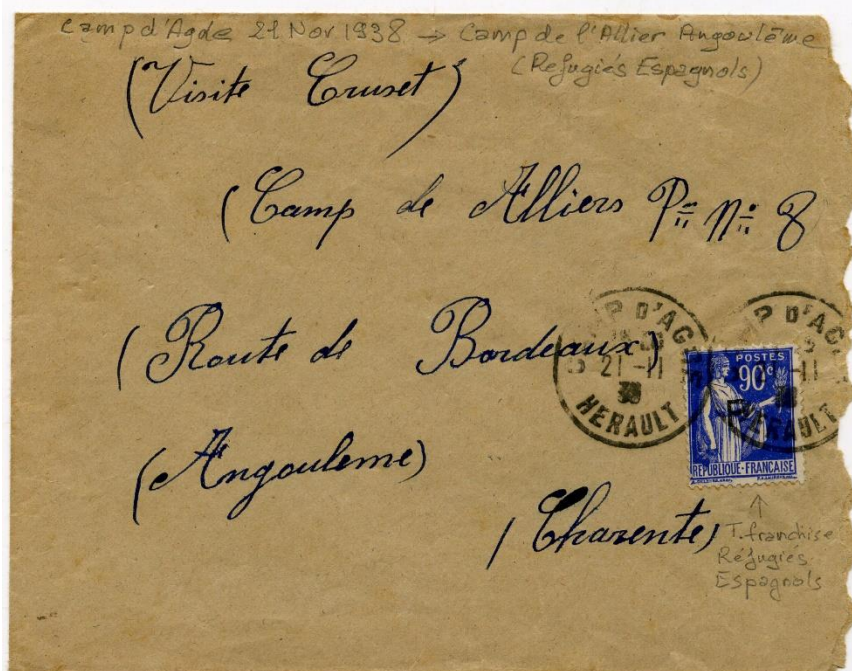 Camp d'Agde 21 Nov 1938 → Camp de l'Allier Angoulême
(Réfugiés Espagnols)
(Visite Cruset)
(Camp de Alliers P= nº 8
(Route de Bordeaux)
(Angouleme)
(Charente)
P D'AG
21 -11
38
HERAULT
P D'AG
-11
HERAULT
POSTES
90c
F
REPUBLIQUE-FRANCAISE
↑
T. franchise
Réfugiés
Espagnols